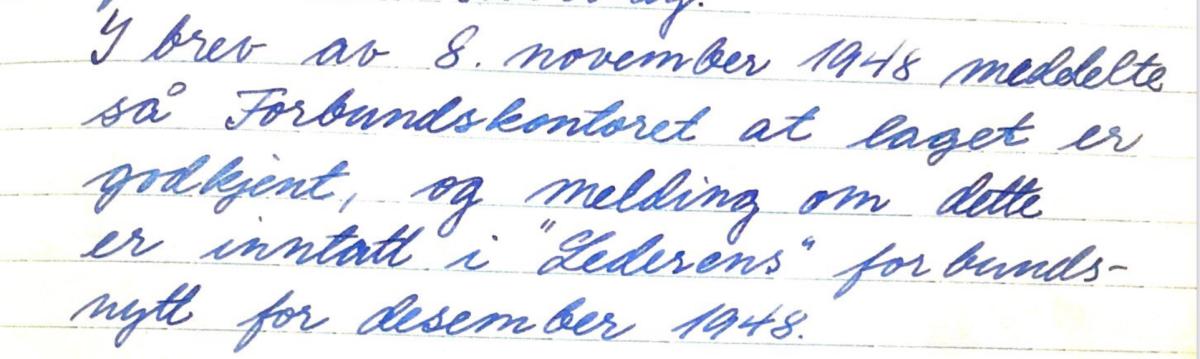 I brev av 8. november 1948 meddelte
så Forbundskontoret at laget er
godkjent, og melding om dette
er inntatt i "Lederens" forbunds-
nytt for desember 1948.